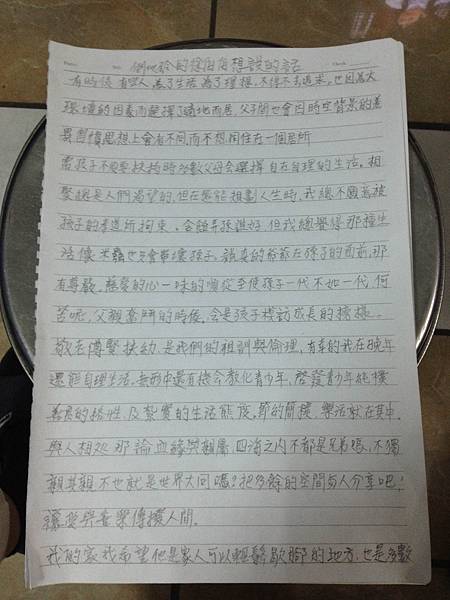 有時侯有些人為了生活為了理想,不得不去追求,也因為大
環境的因素而選擇了適地而居,父子間也會因時空背景的差
異習慣思想上會有不同而不想同住在一個居所
當孩子不需要扶持時多數父母會選擇自在自理的生活。相
聚總是人們渴望的,但在還能規劃人生時,我總不願意被
孩子的孝道所拘束。含飴弄孫誰好,但我總覺得那種生
活像米蟲也只會奪壞孩子,說真的爺爺在孫子的面前,那
有尊嚴。慈愛的心一味的順從至使孩子一代不如一代,何
苦呢,父親奮鬥的時候,會是孩子模訪成長的榜樣。
敬老傳賢扶幼,是我們的祖訓與倫理,有幸的我在晚年
還能自理生活,無形中還有機會教化青少年,啓發青少年純樸
善良的榜性及紮實的生活態度,節的簡樸,樂活就在其中。
與人相処那論血緣與親屬,四海之內不都是兄弟嗎,不獨
親其親不也就是世界大同嗎?把多餘的空間與人分享吧!
讓愛與喜樂傳撲人間。
我的家我希望他是家人可以輕鬆歇腳的地方,也是多數